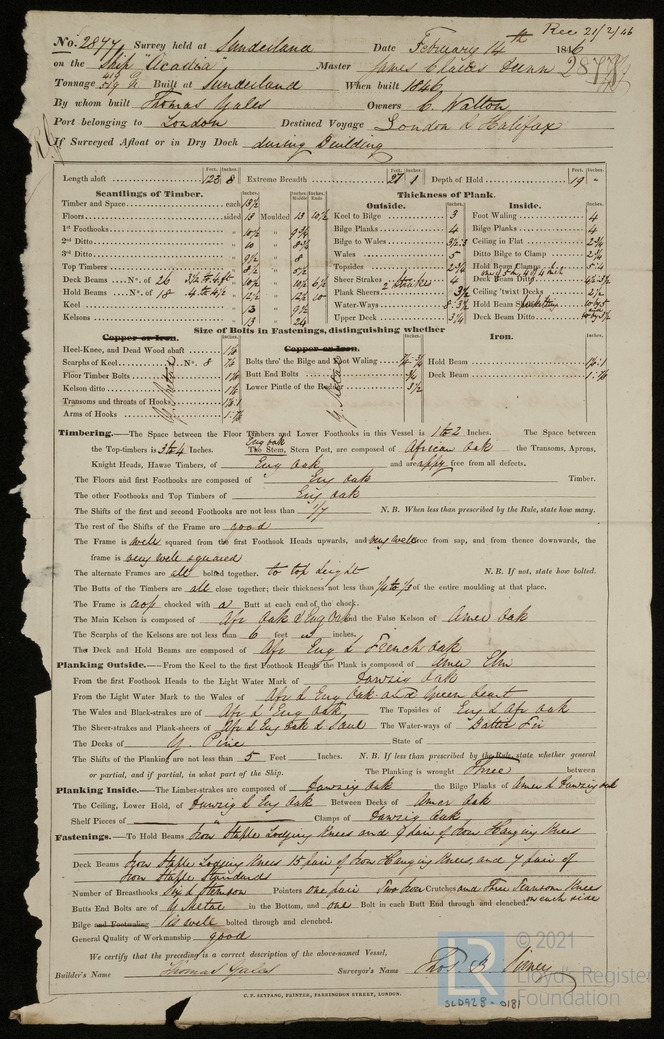 Rec 21/2/46
No. 2877 Survey held at Sunderland Date February 14th 1846
on the Ship "Acadia" Master James Charles 2877
Tonnage 419 Built at Sunderland When built 1846
By whom built Thomas Gales Owners C. Walton
Port belonging to London Destined Voyage London & Halifax
If Surveyed Afloat or in Dry Dock during Building
Feet. Inches. Feet. Inches. Feet. Inches.
Length aloft 123 8 Extreme Breadth 27 1 Depth of Hold 19 "
Scantlings of Timber. Thickness of Plank.
Outside. Inside.
Timber and Space each 13½
Floors sided 13 Moulded 13 10½ Keel to Bilge 3 Foot Waling 4
1st Foothooks 10½ " 9¾ Bilge Planks 4 Bilge Planks 4
2nd Ditto 10 " 8¾ Bilge to Wales 3½.3 Ceiling in Flat 2¾
3rd Ditto 9½ " 8 Wales 5 Ditto Bilge to Clamp 2¼
Top Timbers 8½ " 5½ Topsides 2¾ Hold Beam Clamps 5.4
Deck Beams No. of 26 10½ " 10½ 6½ Sheer Strakes 2 strakes 4 Deck Beam Ditto
Hold Beams No. of 18 4 to 4½ 12½ " 12½ 10 Plank Sheers 3½ Ceiling 'twixt Decks 2½
Keel 13 " 9½ Water-Ways 8.3½ Hold Beam
Kelsons 13 " 24 Upper Deck 3¼ Deck Beam Ditto
Size of Bolts in Fastenings, distinguishing whether
Copper or Iron. Copper or Iron. Iron.
Heel-Knee, and Dead Wood abaft 1⅛ Bolts thro' the Bilge and Foot Waling Hold Beam
Scarphs of Keel No. 8 ⅞ Butt End Bolts ¾ Deck Beam
Floor Timber Bolts 1⅛ Lower Pintle of the Rudder 3½
Kelson ditto 1⅛
Transoms and throats of Hooks
Arms of Hooks
Y. Metal
Y. Metal
Timbering.—The Space between the Floor Timbers and Lower Foothooks in this Vessel is 1 to 2 Inches. The Space between
the Top-timbers is 3 to 4 Inches. The Stem, Eng oak Stern Post, are composed of African Oak the Transoms, Aprons,
Knight Heads, Hawse Timbers, of Eng Oak and are appy free from all defects.
The Floors and first Foothooks are composed of Eng oak Timber.
The other Foothooks and Top Timbers of Eng oak
The Shifts of the first and second Foothooks are not less than 1/7 N.B. When less than prescribed by the Rule, state how many.
The rest of the Shifts of the Frame are good
The Frame is well squared from the first Foothook Heads upwards, and very well free from sap, and from thence downwards, the
frame is very well squared
The alternate Frames are all bolted together. to top height N.B. If not, state how bolted.
The Butts of the Timbers are all close together; their thickness not less than ¼ to ⅓ of the entire moulding at that place.
The Frame is crop chocked with a Butt at each end of the chock.
The Main Kelson is composed of Afr Oak & Eng Oak and the False Kelson of Amer Oak
The Scarphs of the Kelsons are not less than 6 feet " inches.
The Deck and Hold Beams are composed of Afr Eng & French Oak
Planking Outside.—From the Keel to the first Foothook Heads the Plank is composed of Amer Elm
From the first Foothook Heads to the Light Water Mark of Danzig Oak
From the Light Water Mark to the Wales of Afr & Eng Oak and Green heart
The Wales and Black-strakes are of Afr & Eng Oak The Topsides of Eng & Afr Oak
The Sheer-strakes and Plank-sheers of Afr & Eng Oak & Saul The Water-ways of Baltic Fir
The Decks of Y. Pine State of
The Shifts of the Planking are not less than 5 Feet Inches. N.B. If less than prescribed by the Rule, state whether general
or partial, and if partial, in what part of the Ship. The Planking is wrought Three between
Planking Inside.—The Limber-strakes are composed of Danzig oak the Bilge Planks of Amer & Danzig oak
The Ceiling, Lower Hold, of Danzig & Eng Oak Between Decks of Amer Oak
Shelf Pieces of Clamps of Danzig Oak
Fastenings.—To Hold Beams Iron Staple Lodging Knees and 9 pair of Iron Hanging Knees
Deck Beams Iron Staple Lodging Knees 15 pair of Iron Hanging Knees, and 7 pair of
Iron Staple Standards
Number of Breasthooks Six & Stemson Pointers one pair Two Iron Crutches and Three Transom Knees on each side
Butts End Bolts are of Y Metal in the Bottom, and one Bolt in each Butt End through and clenched.
Bilge and Footwaling is well bolted through and clenched.
General Quality of Workmanship good
We certify that the preceding is a correct description of the above-named Vessel,
Builder's Name Thomas Gales Surveyor's Name Thos. B.
C. F. SEYFANG, PRINTER, FARRINGDON STREET, LONDON.
SLD928-0181
LR
© 2021
Lloyd's Register
Foundation